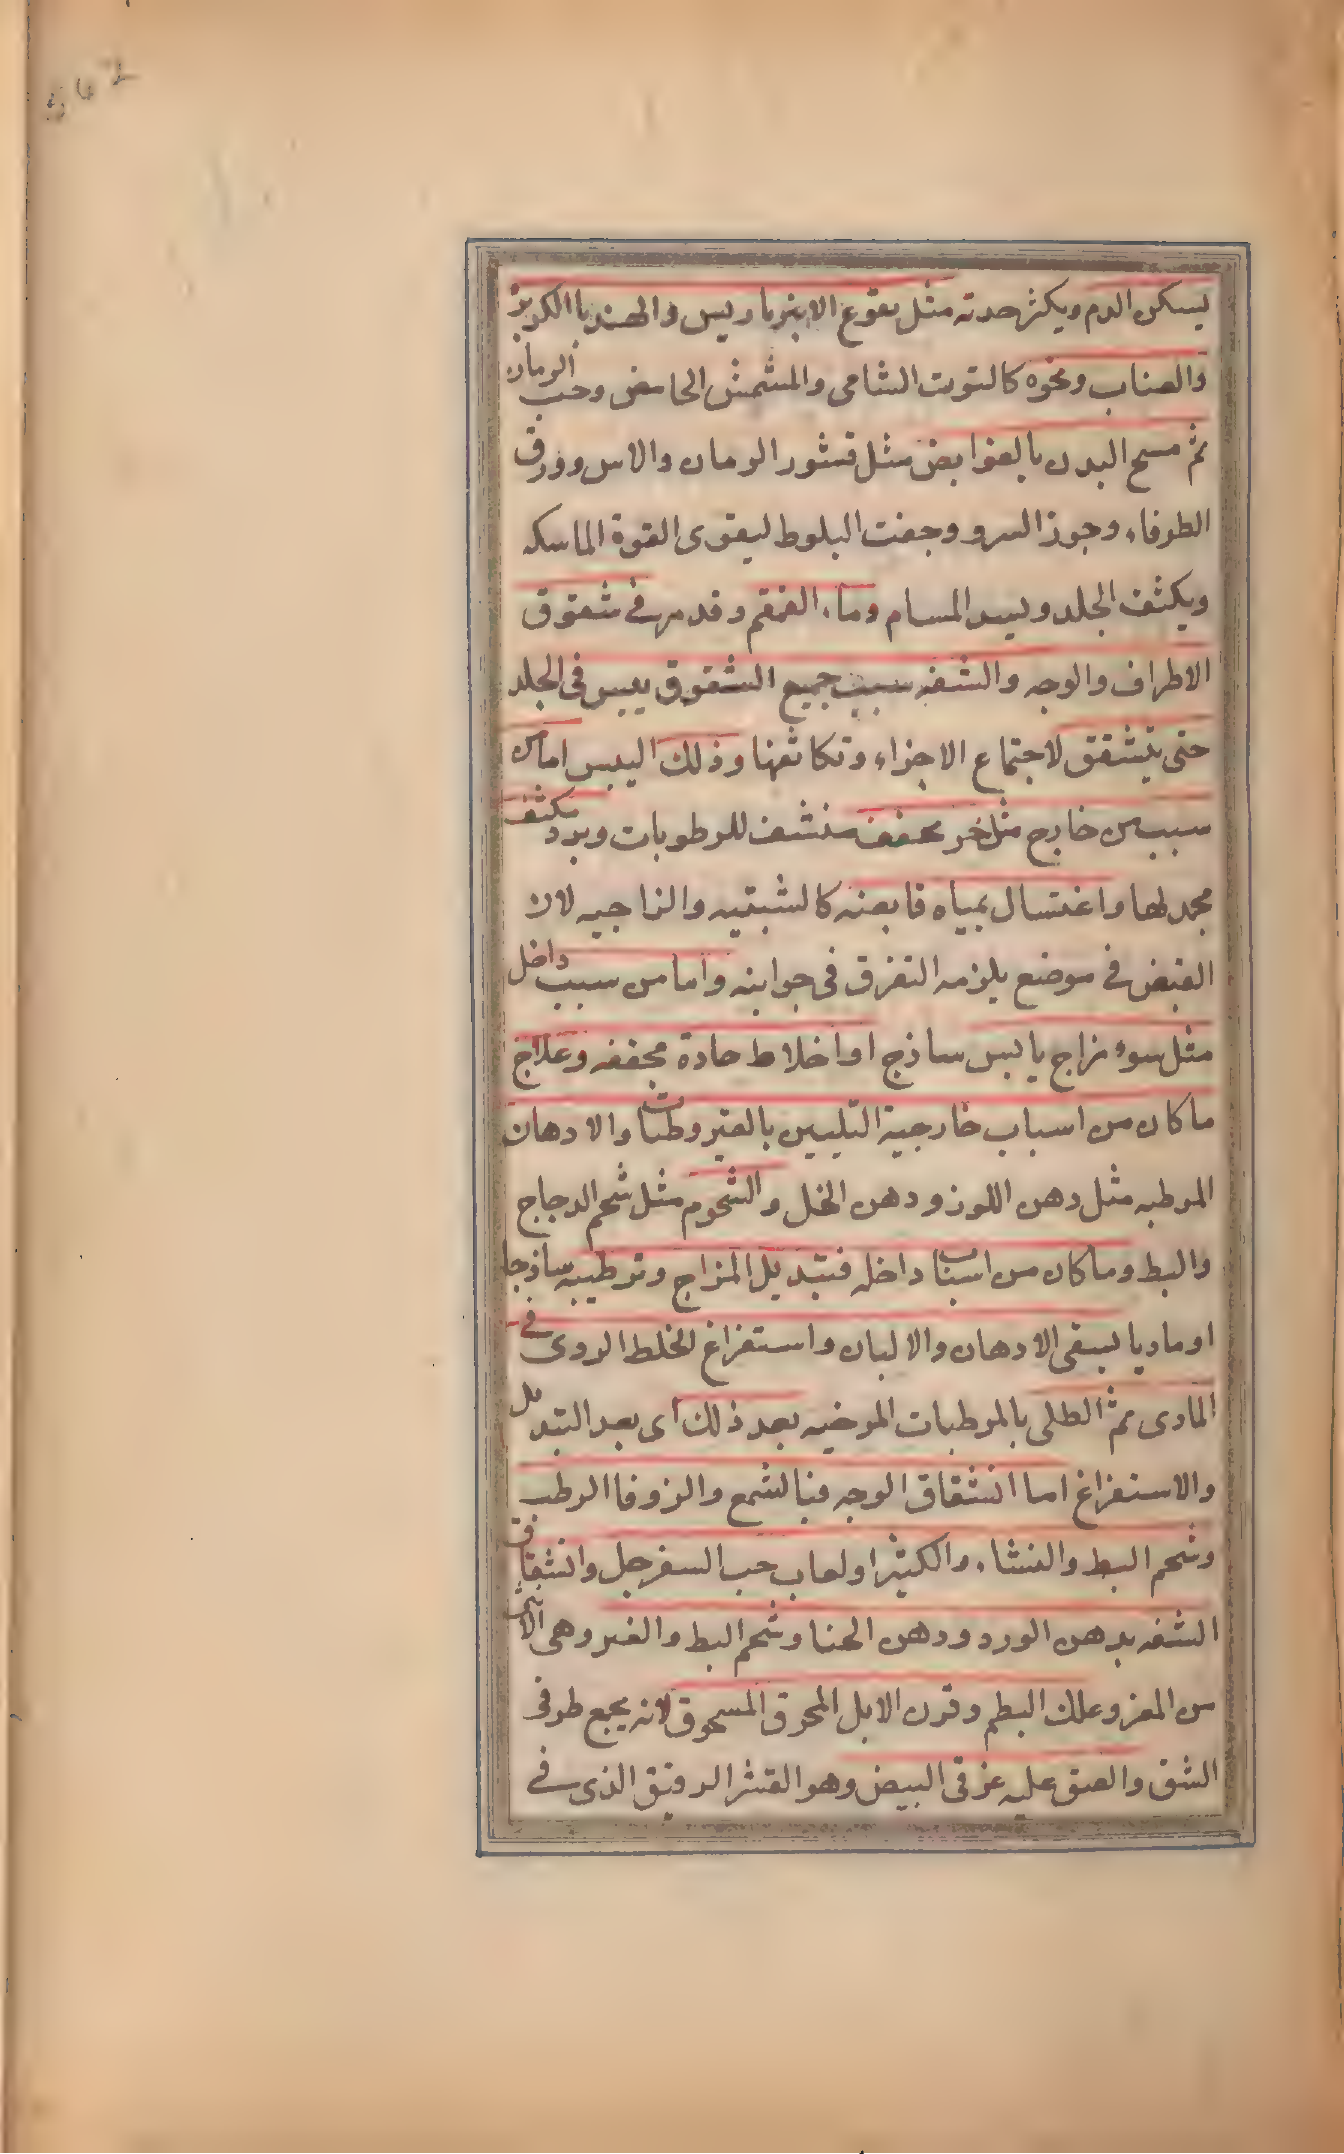 يسكن الدم ويكثر حدته مثل نقوع الانبرباريس والهندبا الكزبز
والعناب ونحوه كالتوت الشامى والمشمش الحامض وحب الرمان
ثم مسح البدن بالقوابض مثل قشور الرمان والاس وورق
الطرفاء وجوز السرو وجفت البلوط ليقوى القوة الماسكه
ويكثف الجلد ويسد المسام وماء القمقم وقد مر فى شقوق
الاطراف والوجه والشفه سبب جميع الشقوق يبس فى الجلد
حتى يتشقق لاجتماع الاجزاء وتكاثفها وذلك اليبس اما من
سبب من خارج مثل حر مجفف منشف للرطوبات وبرد مكثف
مجمد لها واغتسال بمياه قابضه كالشبتيه والزاجيه لان
القبض فى موضع يلزمه التفرق فى جوانبه واما من سبب داخل
مثل سوء مزاج يابس ساذج او اخلاط حادة مجففه وعلاج
ما كان من اسباب خارجية التليين بالقيروطيات والادهان
المرطبه مثل دهن اللوز ودهن الخل والشحوم مثل شحم الدجاج
والبط وما كان من اسباب داخله فتبديل المزاج وترطيبه ساذجا
او ماديا بسقى الادهان والالبان واستفراغ الخلط الردى فى
المادى ثم الطلى بالمرطبات المرخيه بعد ذلك اى بعد التبديل
والاستفراغ اما انشقاق الوجه فبالشمع والزوفا الرطب
وشحم البط والنشاء والكثيرا ولعاب حب السفرجل وانشقاق
الشفه بدهن الورد ودهن الحنا وشحم البط والغبر وهى الانثى
من المعز وعلك البطم وقرن الايل المحرق المسحوق لانه يجمع طرفى
الشق والصق عليه غرقى البيض وهو القشر الرقيق الذى فى